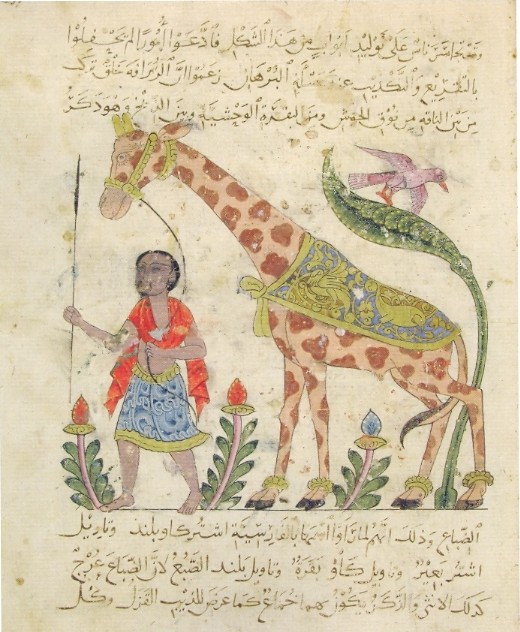 وقد تجاسر ناس على توليد ابواب من هذا الشكل فادعوا امورا لم يحفلوا
بالتقريع والتكذيب عند مسئلة البرهان زعموا ان الزرافه خلق تركب
من بين الناقه من نوق الحبش ومن البقره الوحشية وبين الذيخ وهو ذكر
الضباع وذلك انهم لما راوا اسمها بالفارسية اشتر كاو بلند وتاويل
اشتر بعير وتاويل كاو بقرة وتاويل بلند الضبع لان الضباع عرج
كذلك الانثى والذكر يكون بهما خماع كما عرض للذيب القزل وكل